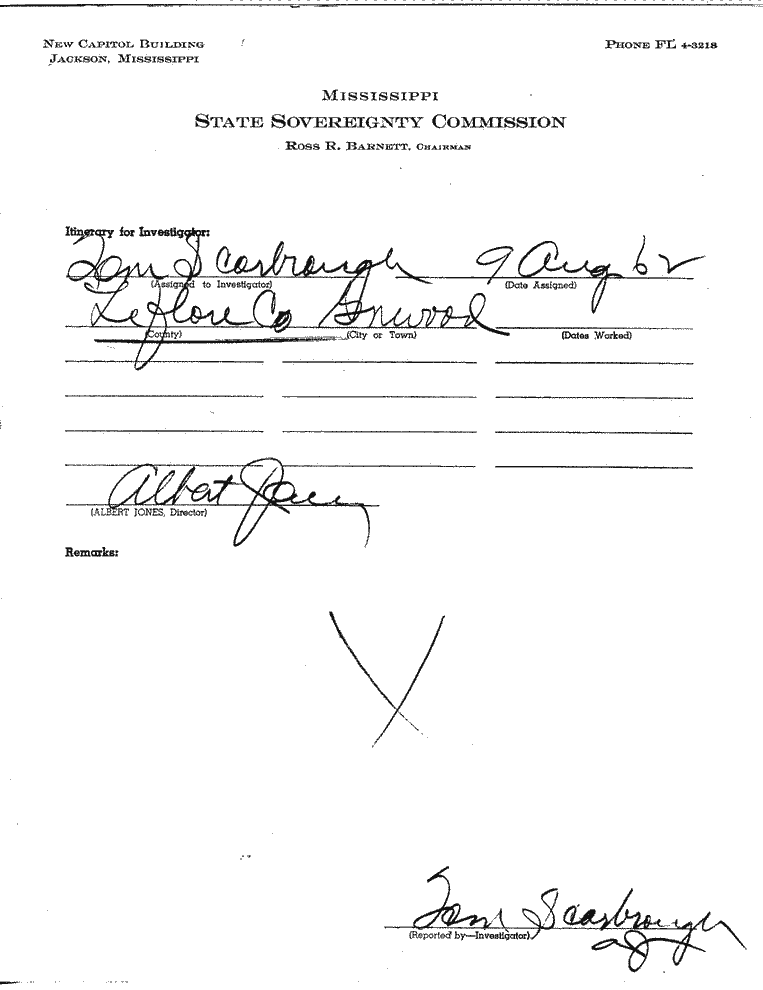 NEW CAPITOL BUILDING
JACKSON, MISSISSIPPI
PHONE FL 4-3218
MISSISSIPPI
STATE SOVEREIGNTY COMMISSION
ROSS R. BARNETT, CHAIRMAN
Itinerary for Investigator:
Tom Scarbrough 9 Aug 62
(Assigned to Investigator) (Date Assigned)
Leflore Co Gnwood
(County) (City or Town) (Dates Worked)
Albert Jones
(ALBERT JONES, Director)
Remarks:
Tom Scarbrough
(Reported by—Investigator)
aJ